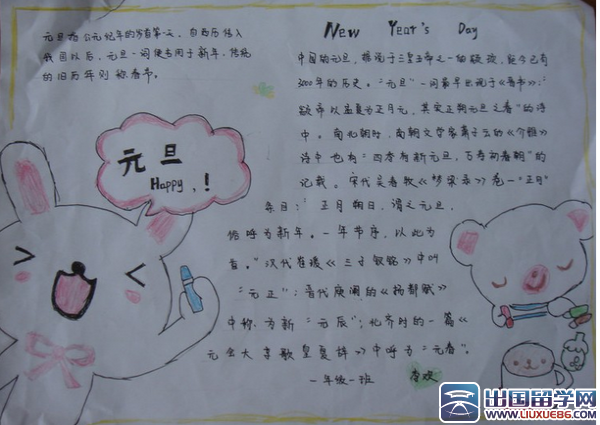 元旦指公元纪年的岁首第一天，自西历传入
我国以后，元旦一词便专用于新年，传统
的旧历年则称春节。
元旦
Happy , !
New Year's Day
中国的元旦，据说于三皇五帝之一的颛顼，距今已有
3000年的历史。"元旦"一词最早出现于《晋书》："
颛帝以孟夏为正月元，其实正朔元旦之春"的诗
中。南北朝时，南朝文学家萧子云的《介雅》
诗中也有"四季有新元旦，万寿初春朝"的
记载。宋代吴自牧《梦梁录》卷一"正月"
条目："正月朔日，谓之元旦，
俗呼为新年。一年节序，以此为
首。"汉代崔瑗《三子钗铭》中叫
"元正"；晋代庾阐的《扬都赋》
中称为新"元辰"；北齐时的一篇《
元会大享歌皇夏辞》中呼为"元春"。
一年级一班
出国留学网
WWW.LIUXUE86.COM